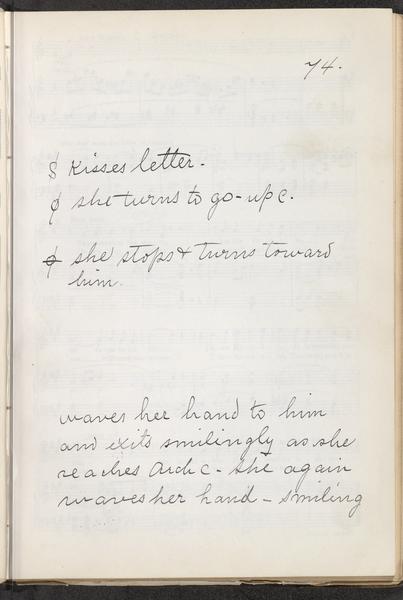 74.
§ Kisses letter.
ϕ she turns to go - up c.
ϕ she stops & turns toward
him.
waves her hand to him
and exits smilingly as she
reaches Arch c - she again
waves her hand - smiling